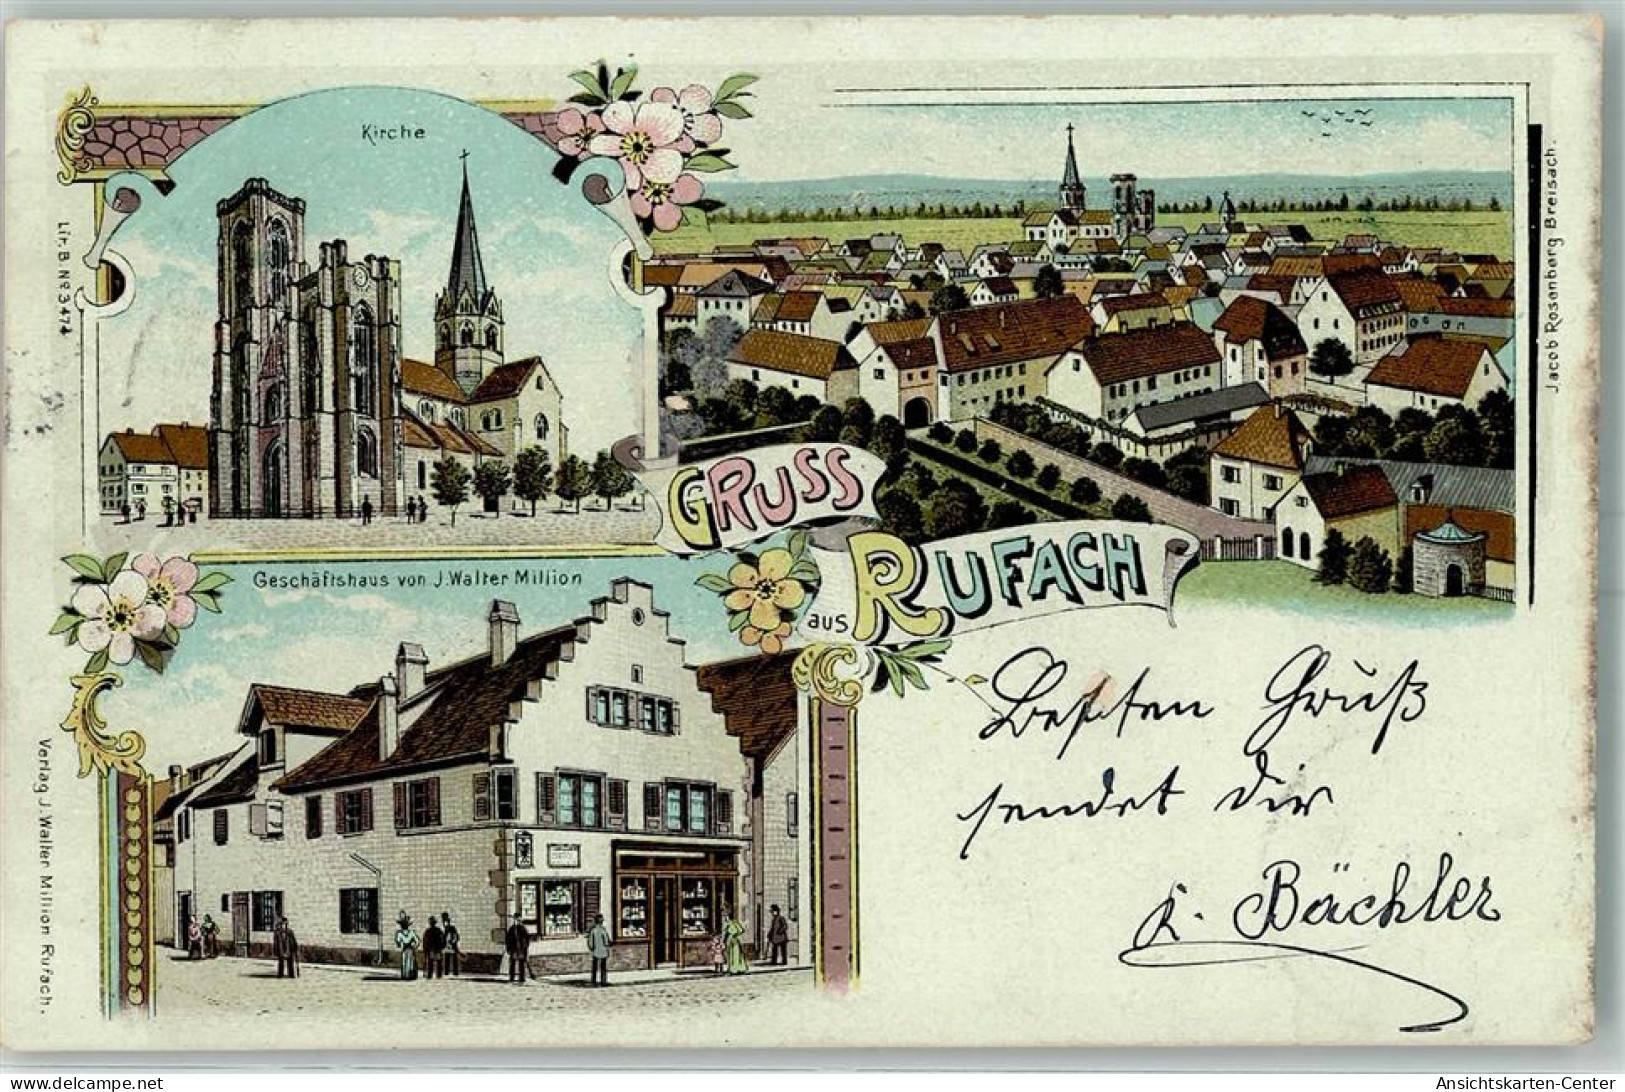 Kirche
GRUSS
aus RUFACH
Geschäftshaus von J. Walter Million
Lit. B. Nº 3474
Verlag J. Walter Million Rufach.
Jacob Rosenberg Breisach.
Besten Gruß
sendet dir
K. Bächler
delcampe.net
Ansichtskarten-Center